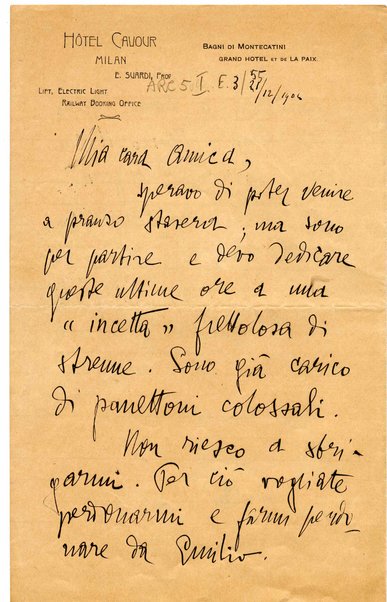 HÔTEL CAVOUR
MILAN
E. SUARDI, Prop.
LIFT, ELECTRIC LIGHT
RAILWAY BOOKING OFFICE
BAGNI DI MONTECATINI
GRAND HOTEL ET DE LA PAIX.
ARC 5. II E. 3/55
27/12/1904
Mia cara amica,
speravo di poter venire
a pranzo stasera; ma sono
per partire e devo dedicare
queste ultime ore a una
"incetta" frettolosa di
strenne. Sono già carico
di panettoni colossali.
Non riesco a sbri-
garmi. Per ciò vogliate
perdonarmi e farmi perdo-
nare da Emilio.